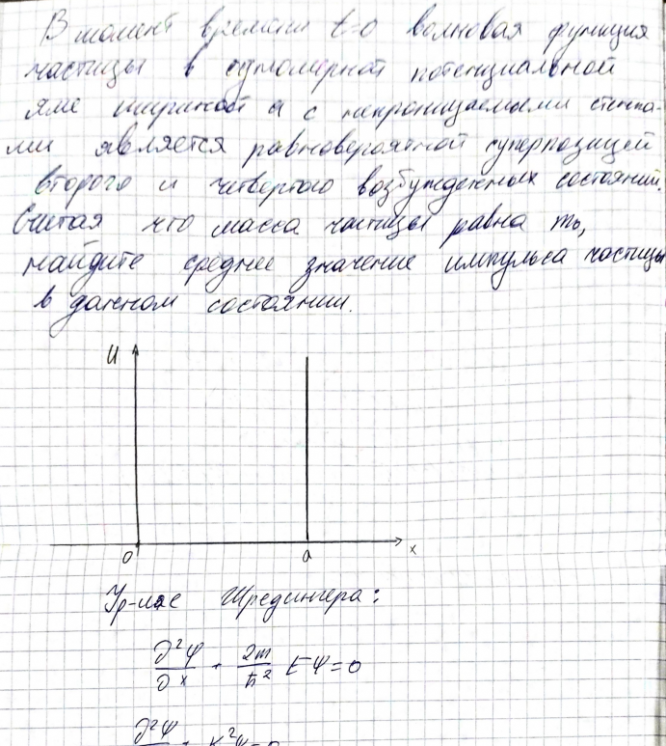 В момент времени t=0 волновая функция
частицы в одномерной потенциальной
яме шириной a с непроницаемыми стенка-
ми является равновероятной суперпозицией
второго и четвертого возбужденных состояний
Считая что масса частицы равна m₀,
найдите среднее значение импульса частицы
в данном состоянии.
U
0 a x
Ур-ие Шредингера:
∂²ψ/∂x + 2m/ħ² Eψ=0
∂²ψ + k²ψ=0